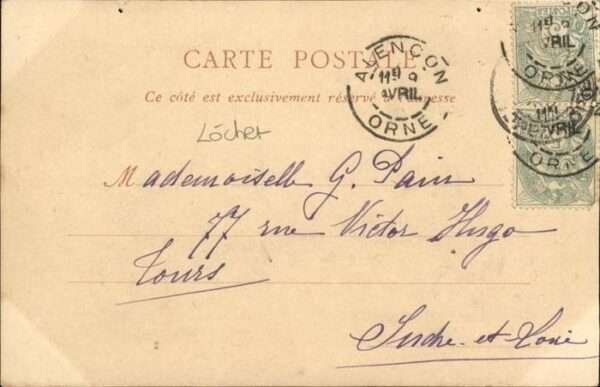 CARTE POSTALE
Ce côté est exclusivement réservé à l'adresse
ALENÇON
11H 9
AVRIL
ORNE
Lôchet
Mademoiselle G. Pain
77 rue Victor Hugo
Tours
Indre-et-Loire
11H 9
AVRIL
ORNE
11H
AVRIL
ORNE